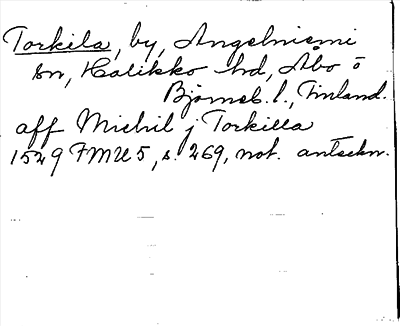 Torkila, by, Angelniemi
sn, Halikko hd, Åbo o
Björneb. l., Finland.
aff Michil j Torkilla
1529 FMU 5, s. 269, not. antekn.